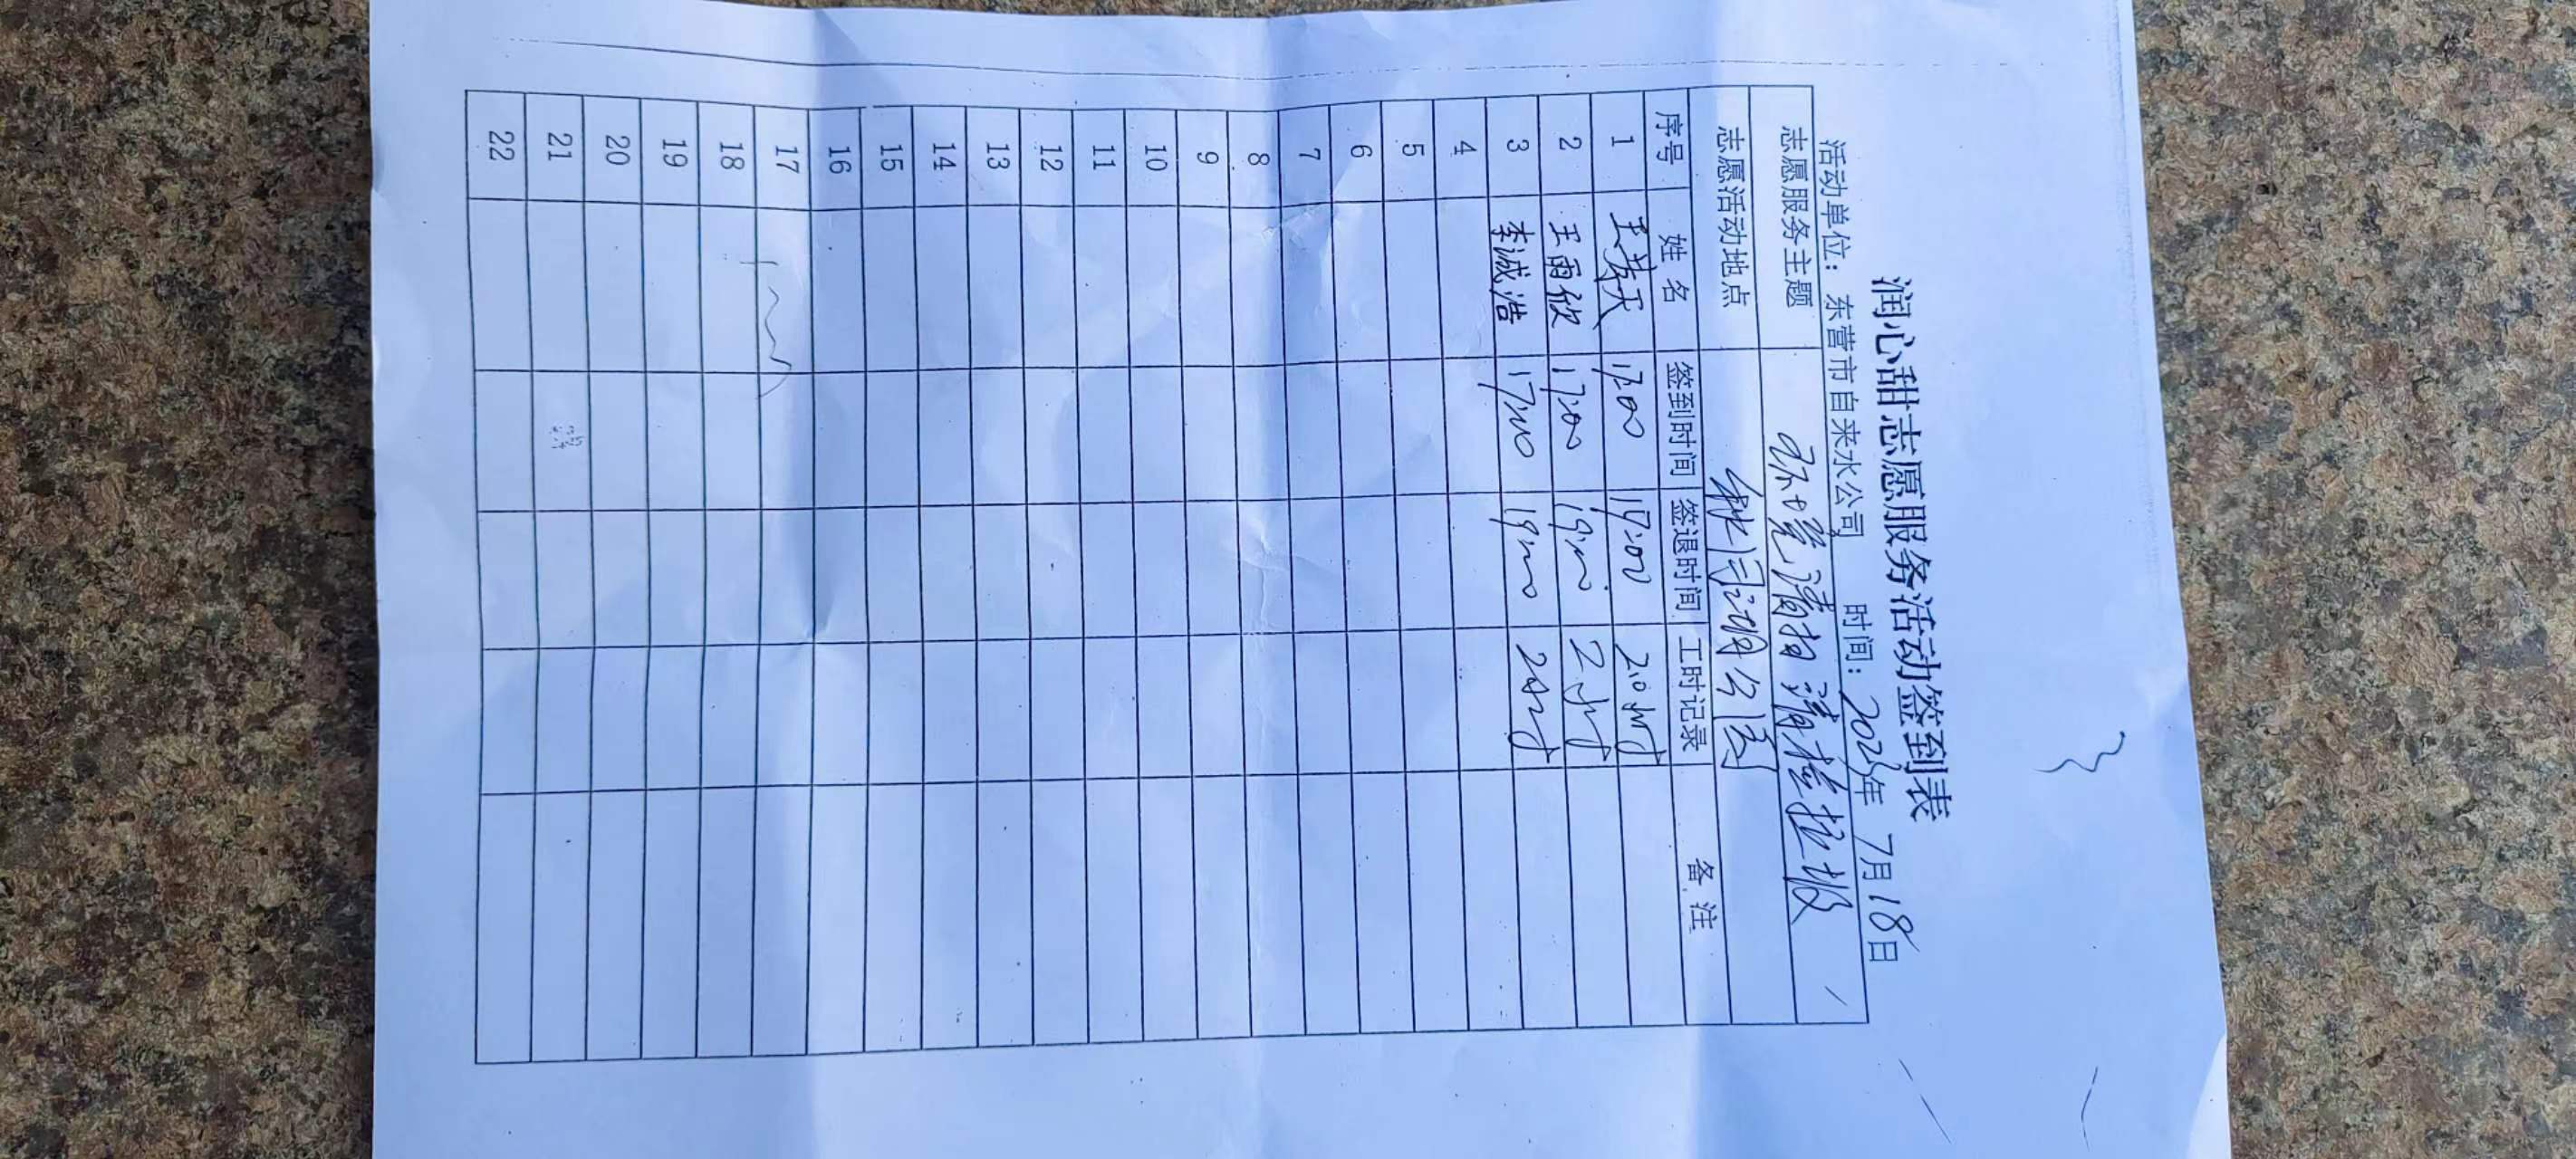 润心甜志愿服务活动签到表
活动单位：东营市自来水公司 时间：2023年 7月18日
志愿服务主题 环境清扫 清捡垃圾
志愿活动地点
序号 姓 名 签到时间 签退时间 工时记录 备 注
1 17:00 19:00 2小时
2 王雨欣 17:00 19:00 2小时
3 李诚浩 17:00 19:00 2小时
4
5
6
7
8
9
10
11
12
13
14
15
16
17
18
19
20
21
22